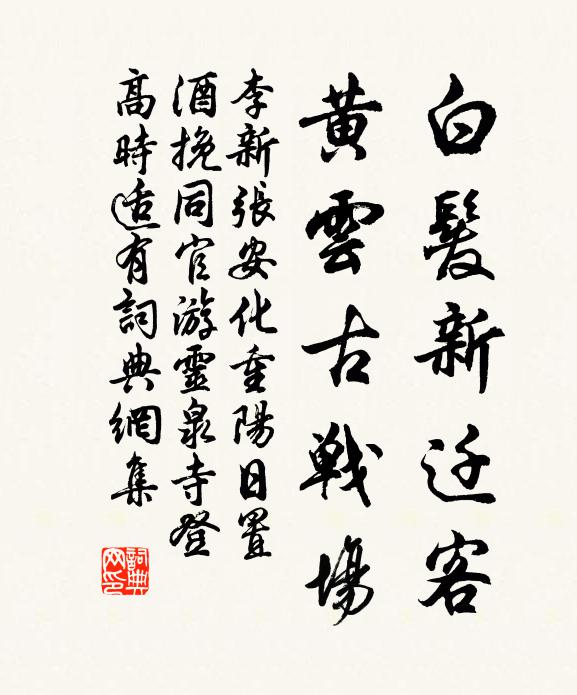 白髮新迁客
黃雲古戦場
李新張安化重陽日置
酒挽同官游靈泉寺登
高時适有詞典網集
詞典网印